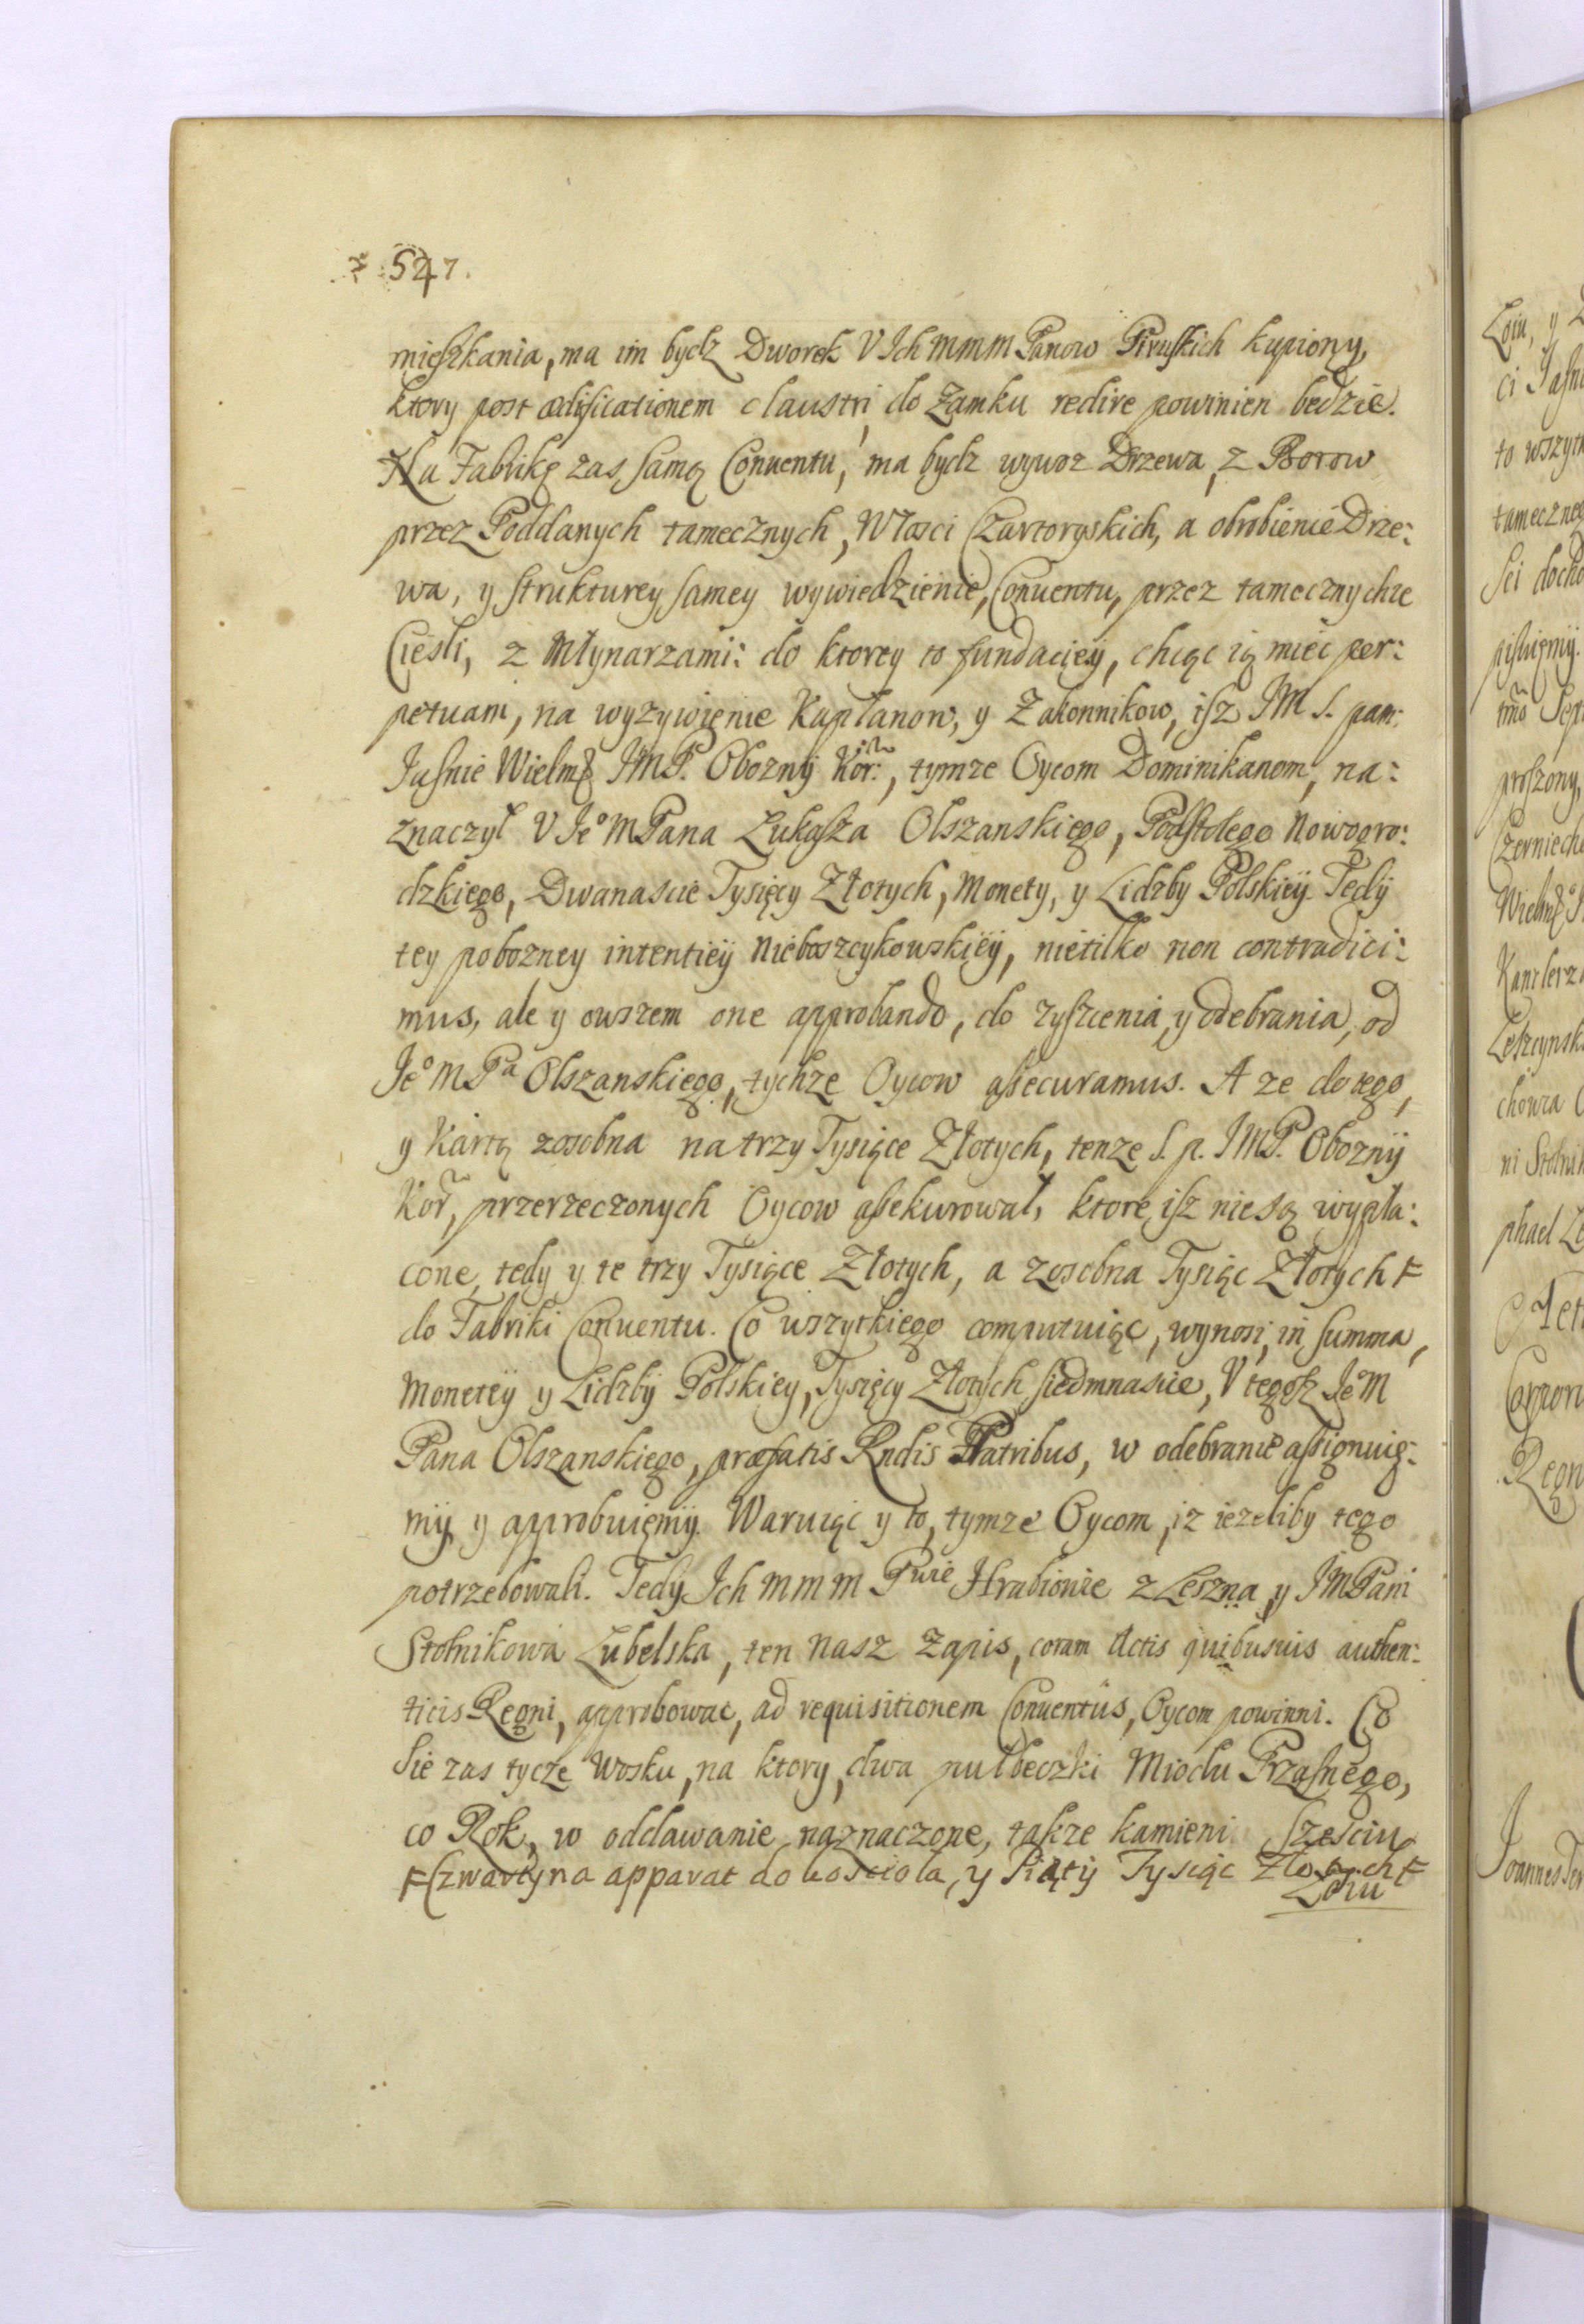 547.
mieszkania, ma im bydz Dworek V Ich mmm Panow Piruskich kupiony,
ktory post ædificationem claustri, do Zamku redire powinien bedzie.
Na Fabrikę zas samą Conuentu, ma bydz wywoz Drzewa, z Borow
przez Poddanych tamecznych, Włosci Czartoryskich, a obrobienie Drze:
wa, y strukturey samey wywiedzienie, Conuentu, przez tamecznychze
Cieśli, z Młynarzami: do ktorey to fundacięy, chcąc ią mieć per:
petuam, na wyzywięnie Kapłanow, y Zakonnikow, isz JM S. pam:
Jasnie Wielmż JMP. Obozny Kor:, tymze Oycom Dominikanom, na:
znaczył V Jeº M Pana Lukasza Olszanskiego, Podstolego Nowogro:
dzkiego, Dwanascie Tysięcy Złotych, Monety, y Lidzby Polskiÿ. Tedÿ
tey pobozney intentiÿ Nieboszcykowskiÿ, nietilko non contradici:
mus, ale y owszem one approbando, do zyszcenia, y odebrania, od
Jeº M Pª Olszanskiego, tychze Oycow assecuramus. A ze do tego,
y Kartą zosobna na trzy Tysiące Złotych, tenze S. p. JMP. Obozny
Kor, przerzeczonych Oycow assekurował, ktore isz nie są wypła:
cone, tedy y te trzy Tysiące Złotych, a zosobna Tysiąc Złotych F
do Fabriki Conuentu. Co wszytkiego computuiąc, wynosi, in summa,
Monetÿ y Lidzbÿ Polskiey, Tysięcy Złotych siedmnascie, V tegosz Jeº M
Pana Olszanskiego, præfatis Rndis Patribus, w odebranie assignuię:
mÿ, y approbuięmÿ. Waruiąc y to, tymze Oycom, iz iezeliby tego
potrzebowali. Tedy Ich mmm Pwie Hrabiowie z Leszna, y JM Pani
Stolnikowa Lubelska, ten Nasz Zapis, coram Actis quibusuis authen:
ticis Regni, approbowac, ad requisitionem Conuentûs, Oycom powinni. Co
sie zas tycze Wosku, na ktory, dwa pułbeczki Miodu Przasnego,
co Rok, w oddawanie naznaczone, takze kamieni Sześciu
F Czwarty na apparat do kosciola, y Piątÿ Tysiąc Złotych F
Łoiu